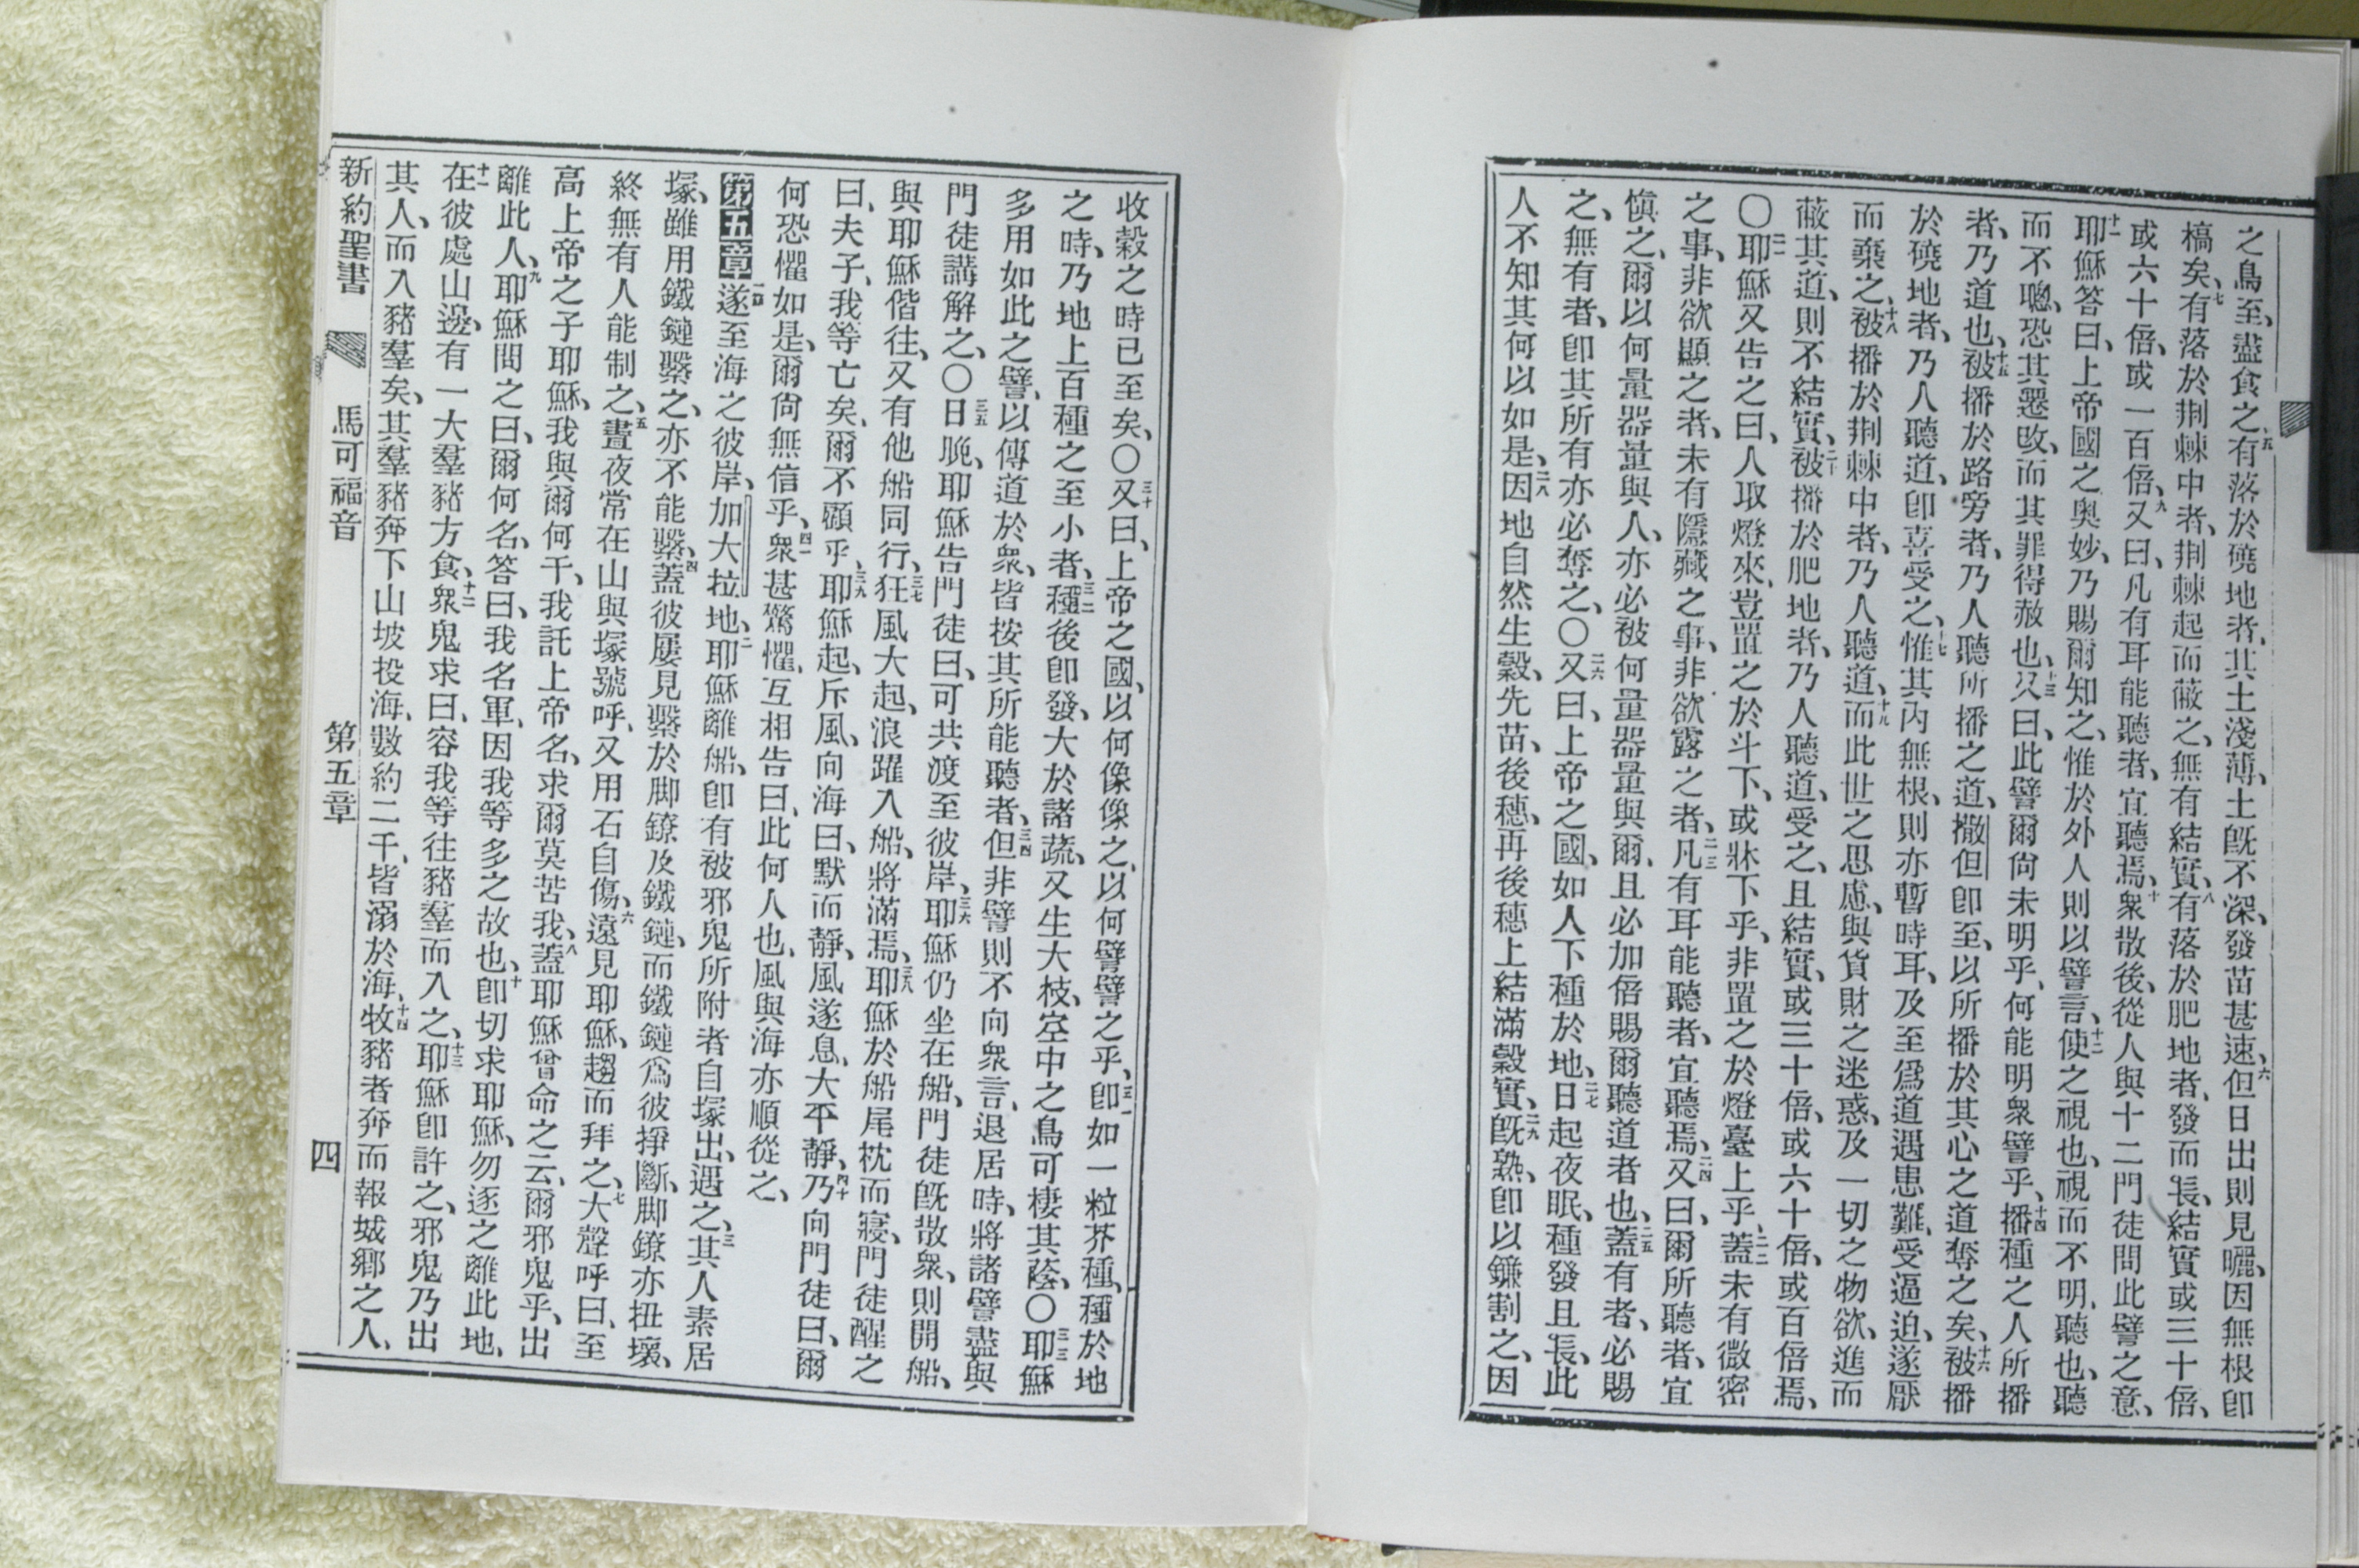 之鳥至、盡食之、五有落於磽地者、其土淺薄、土旣不深、發苗甚速、六但日出則見曬、因無根卽
槁矣、七有落於荆棘中者、荆棘起而蔽之、無有結實、八有落於肥地者、發而長、結實或三十倍、
或六十倍、或一百倍、九又曰、凡有耳能聽者、宜聽焉、十衆散後、從人與十二門徒問此譬之意、
十一耶穌答曰、上帝國之奥妙、乃賜爾知之、惟於外人則以譬言、十二使之視也、視而不明、聽也、聽
而不聰、恐其遷改、而其罪得赦也、十三又曰、此譬爾尙未明乎、何能明衆譬乎、十四播種之人所播
者、乃道也、十五被播於路旁者、乃人聽所播之道、撒但卽至、以所播於其心之道奪之矣、十六被播
於磽地者、乃人聽道、卽喜受之、十七惟其內無根、則亦暫時耳、及至爲道遇患難、受逼迫、遂厭
而棄之、十八被播於荆棘中者、乃人聽道、十九而此世之思慮、與貨財之迷惑、及一切之物欲、進而
蔽其道、則不結實、二十被播於肥地者、乃人聽道、受之、且結實、或三十倍、或六十倍、或百倍焉、
〇二一耶穌又告之曰、人取燈來、豈置之於斗下、或牀下乎、非置之於燈臺上乎、二二蓋未有微密
之事、非欲顯之者、未有隱藏之事、非欲露之者、二三凡有耳能聽者、宜聽焉、二四又曰、爾所聽者、宜
愼之、爾以何量器量與人、亦必被何量器量與爾、且必加倍賜爾聽道者也、二五蓋有者、必賜
之、無有者、卽其所有亦必奪之、〇二六又曰、上帝之國、如人下種於地、二七日起夜眠、種發且長、此
人不知其何以如是、二八因地自然生穀、先苗、後穗、再後穗上結滿穀實、二九旣熟、卽以鐮割之、因
收穀之時已至矣、〇三十又曰、上帝之國、以何像像之、以何譬譬之乎、三一卽如一粒芥種、種於地
之時、乃地上百種之至小者、三二種後卽發、大於諸蔬、又生大枝、空中之鳥可棲其蔭、〇三三耶穌
多用如此之譬、以傳道於衆、皆按其所能聽者、三四但非譬則不向衆言、退居時、將諸譬盡與
門徒講解之、〇三五日晚、耶穌告門徒曰、可共渡至彼岸、三六耶穌仍坐在船、門徒旣散衆、則開船、
與耶穌偕往、又有他船同行、三七狂風大起、浪躍入船、將滿焉、三八耶穌於船尾枕而寢、門徒醒之
曰、夫子、我等亡矣、爾不顧乎、三九耶穌起、斥風、向海曰、默而靜、風遂息、大平靜、四十乃向門徒曰、爾
何恐懼如是、爾尙無信乎、四一衆甚驚懼、互相告曰、此何人也、風與海亦順從之、
第五章 一遂至海之彼岸、加大拉地、二耶穌離船、卽有被邪鬼所附者自塚出、遇之、三其人素居
塚、雖用鐵鏈繫之、亦不能繫、四蓋彼屢見繫於脚鐐及鐵鏈、而鐵鏈爲彼掙斷、脚鐐亦扭壞、
終無有人能制之、五晝夜常在山與塚號呼、又用石自傷、六遠見耶穌、趨而拜之、七大聲呼曰、至
高上帝之子耶穌、我與爾何干、我託上帝名、求爾莫苦我、八蓋耶穌曾命之云、爾邪鬼乎、出
離此人、九耶穌問之曰、爾何名、答曰、我名軍、因我等多之故也、十卽切求耶穌、勿逐之離此地、
十一在彼處山邊、有一大羣豬方食、十二衆鬼求曰、容我等往豬羣而入之、十三耶穌卽許之、邪鬼乃出
其人、而入豬羣矣、其羣豬奔下山坡投海、數約二千、皆溺於海、十四牧豬者奔而報城鄉之人、
新約聖書 馬可福音 第五章 四